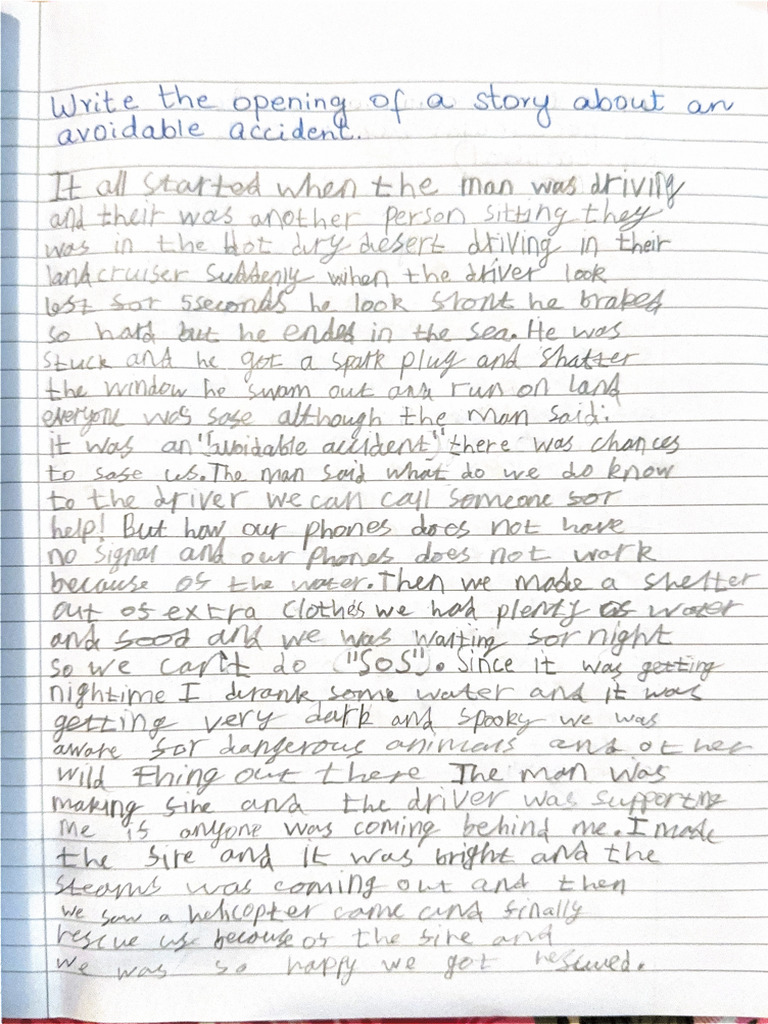 Write the opening of a story about an
avoidable accident.
It all started when the man was driving
and their was another person sitting they
was in the hot dry desert driving in their
landcruiser suddenly when the driver look
left for 5seconds he look front he braked
so hard but he ended in the sea. He was
stuck and he got a spark plug and shatter
the window he swam out and run on land
everyone was safe although the man said:
it was an "(avoidable accident)" there was chances
to safe us. The man said what do we do know
to the driver we can call someone for
help! But how our phones does not have
no signal and our phones does not work
because of the water. Then we made a shelter
out of extra clothes we had plenty of water
and food and we was waiting for night
so we can't do ("SOS"). Since it was getting
nightime I drank some water and it was
getting very dark and spooky we was
aware for dangerous animals and other
wild thing out there The man was
making fire and the driver was supporting
me if anyone was coming behind me. I made
the fire and it was bright and the
steams was coming out and then
we saw a helicopter came and finally
rescue us because of the fire and
we was so happy we got rescued.